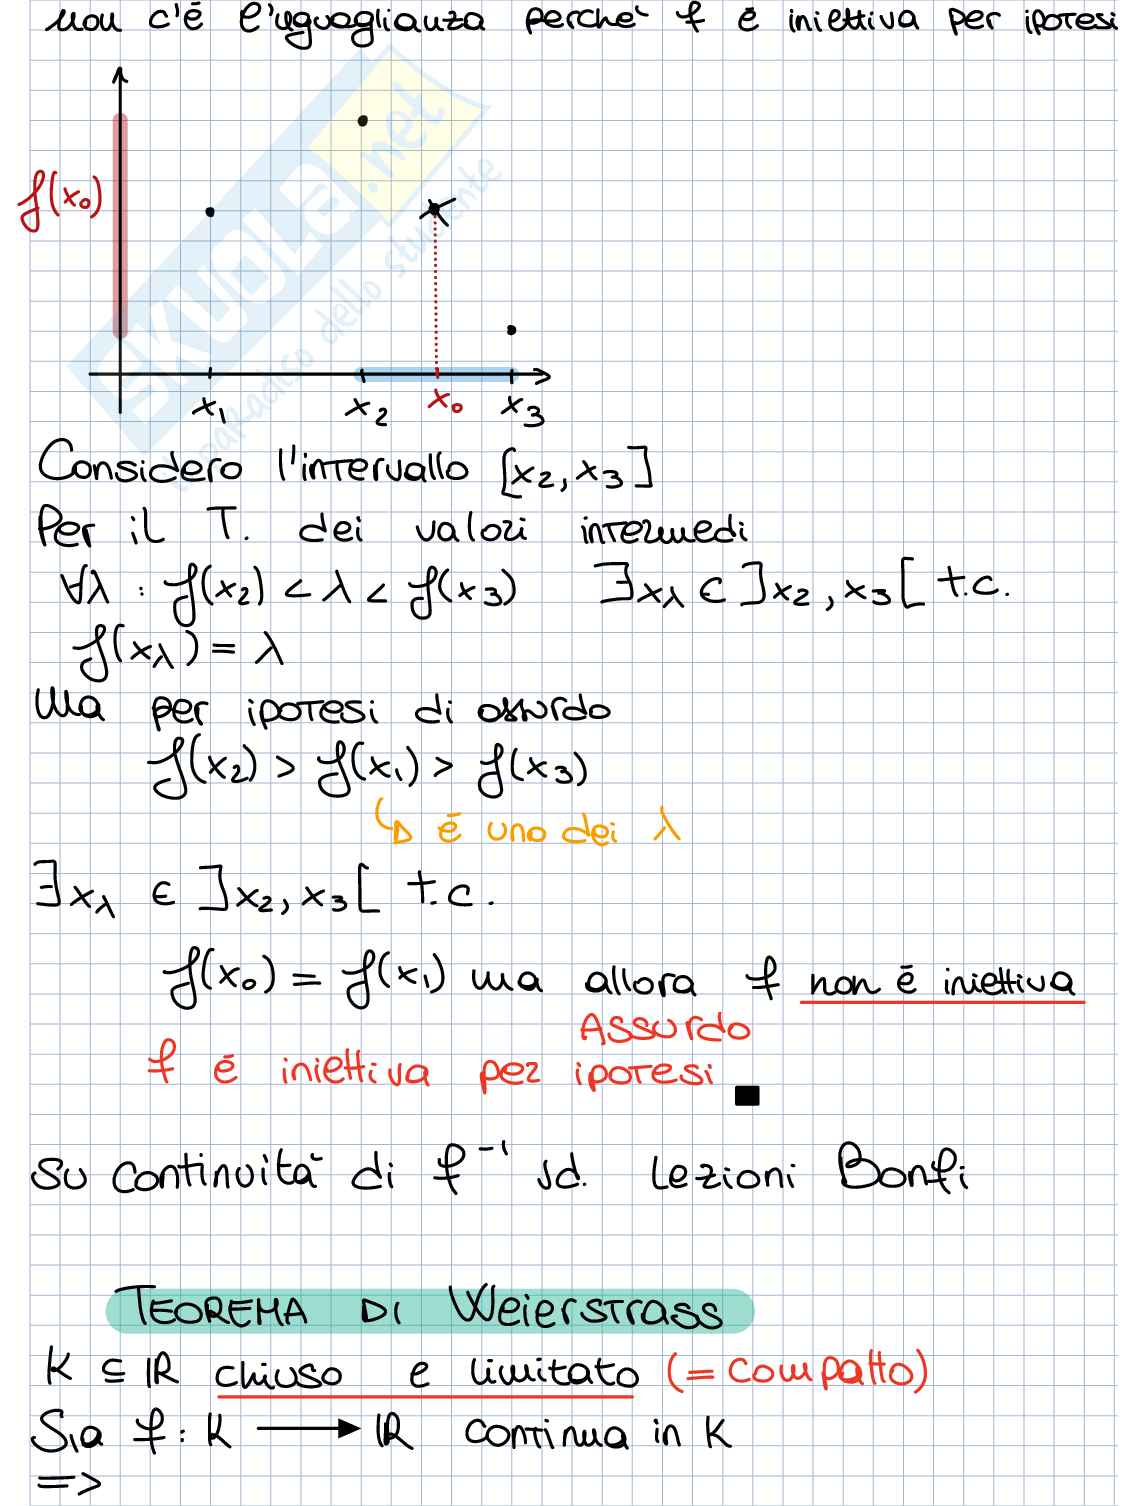 non c'è l'uguaglianza perchè f è iniettiva per ipotesi
f(x₀)
SKUOLA.net
il paradiso dello studente
x₁ x₂ x₀ x₃
Considero l'intervallo [x₂, x₃]
Per il T. dei valori intermedi
∀λ : f(x₂) < λ < f(x₃) ∃xλ ∈ ]x₂, x₃[ t.c.
f(xλ) = λ
Ma per ipotesi di assurdo
f(x₂) > f(x₁) > f(x₃)
↳ è uno dei λ
∃xλ ∈ ]x₂, x₃[ t.c.
f(x₀) = f(x₁) ma allora f non è iniettiva
Assurdo
f è iniettiva per ipotesi ■
Su continuità di f⁻¹ vd. Lezioni Bonfi
TEOREMA DI Weierstrass
K ⊆ ℝ chiuso e limitato (= compatto)
Sia f : K → ℝ continua in K
=>